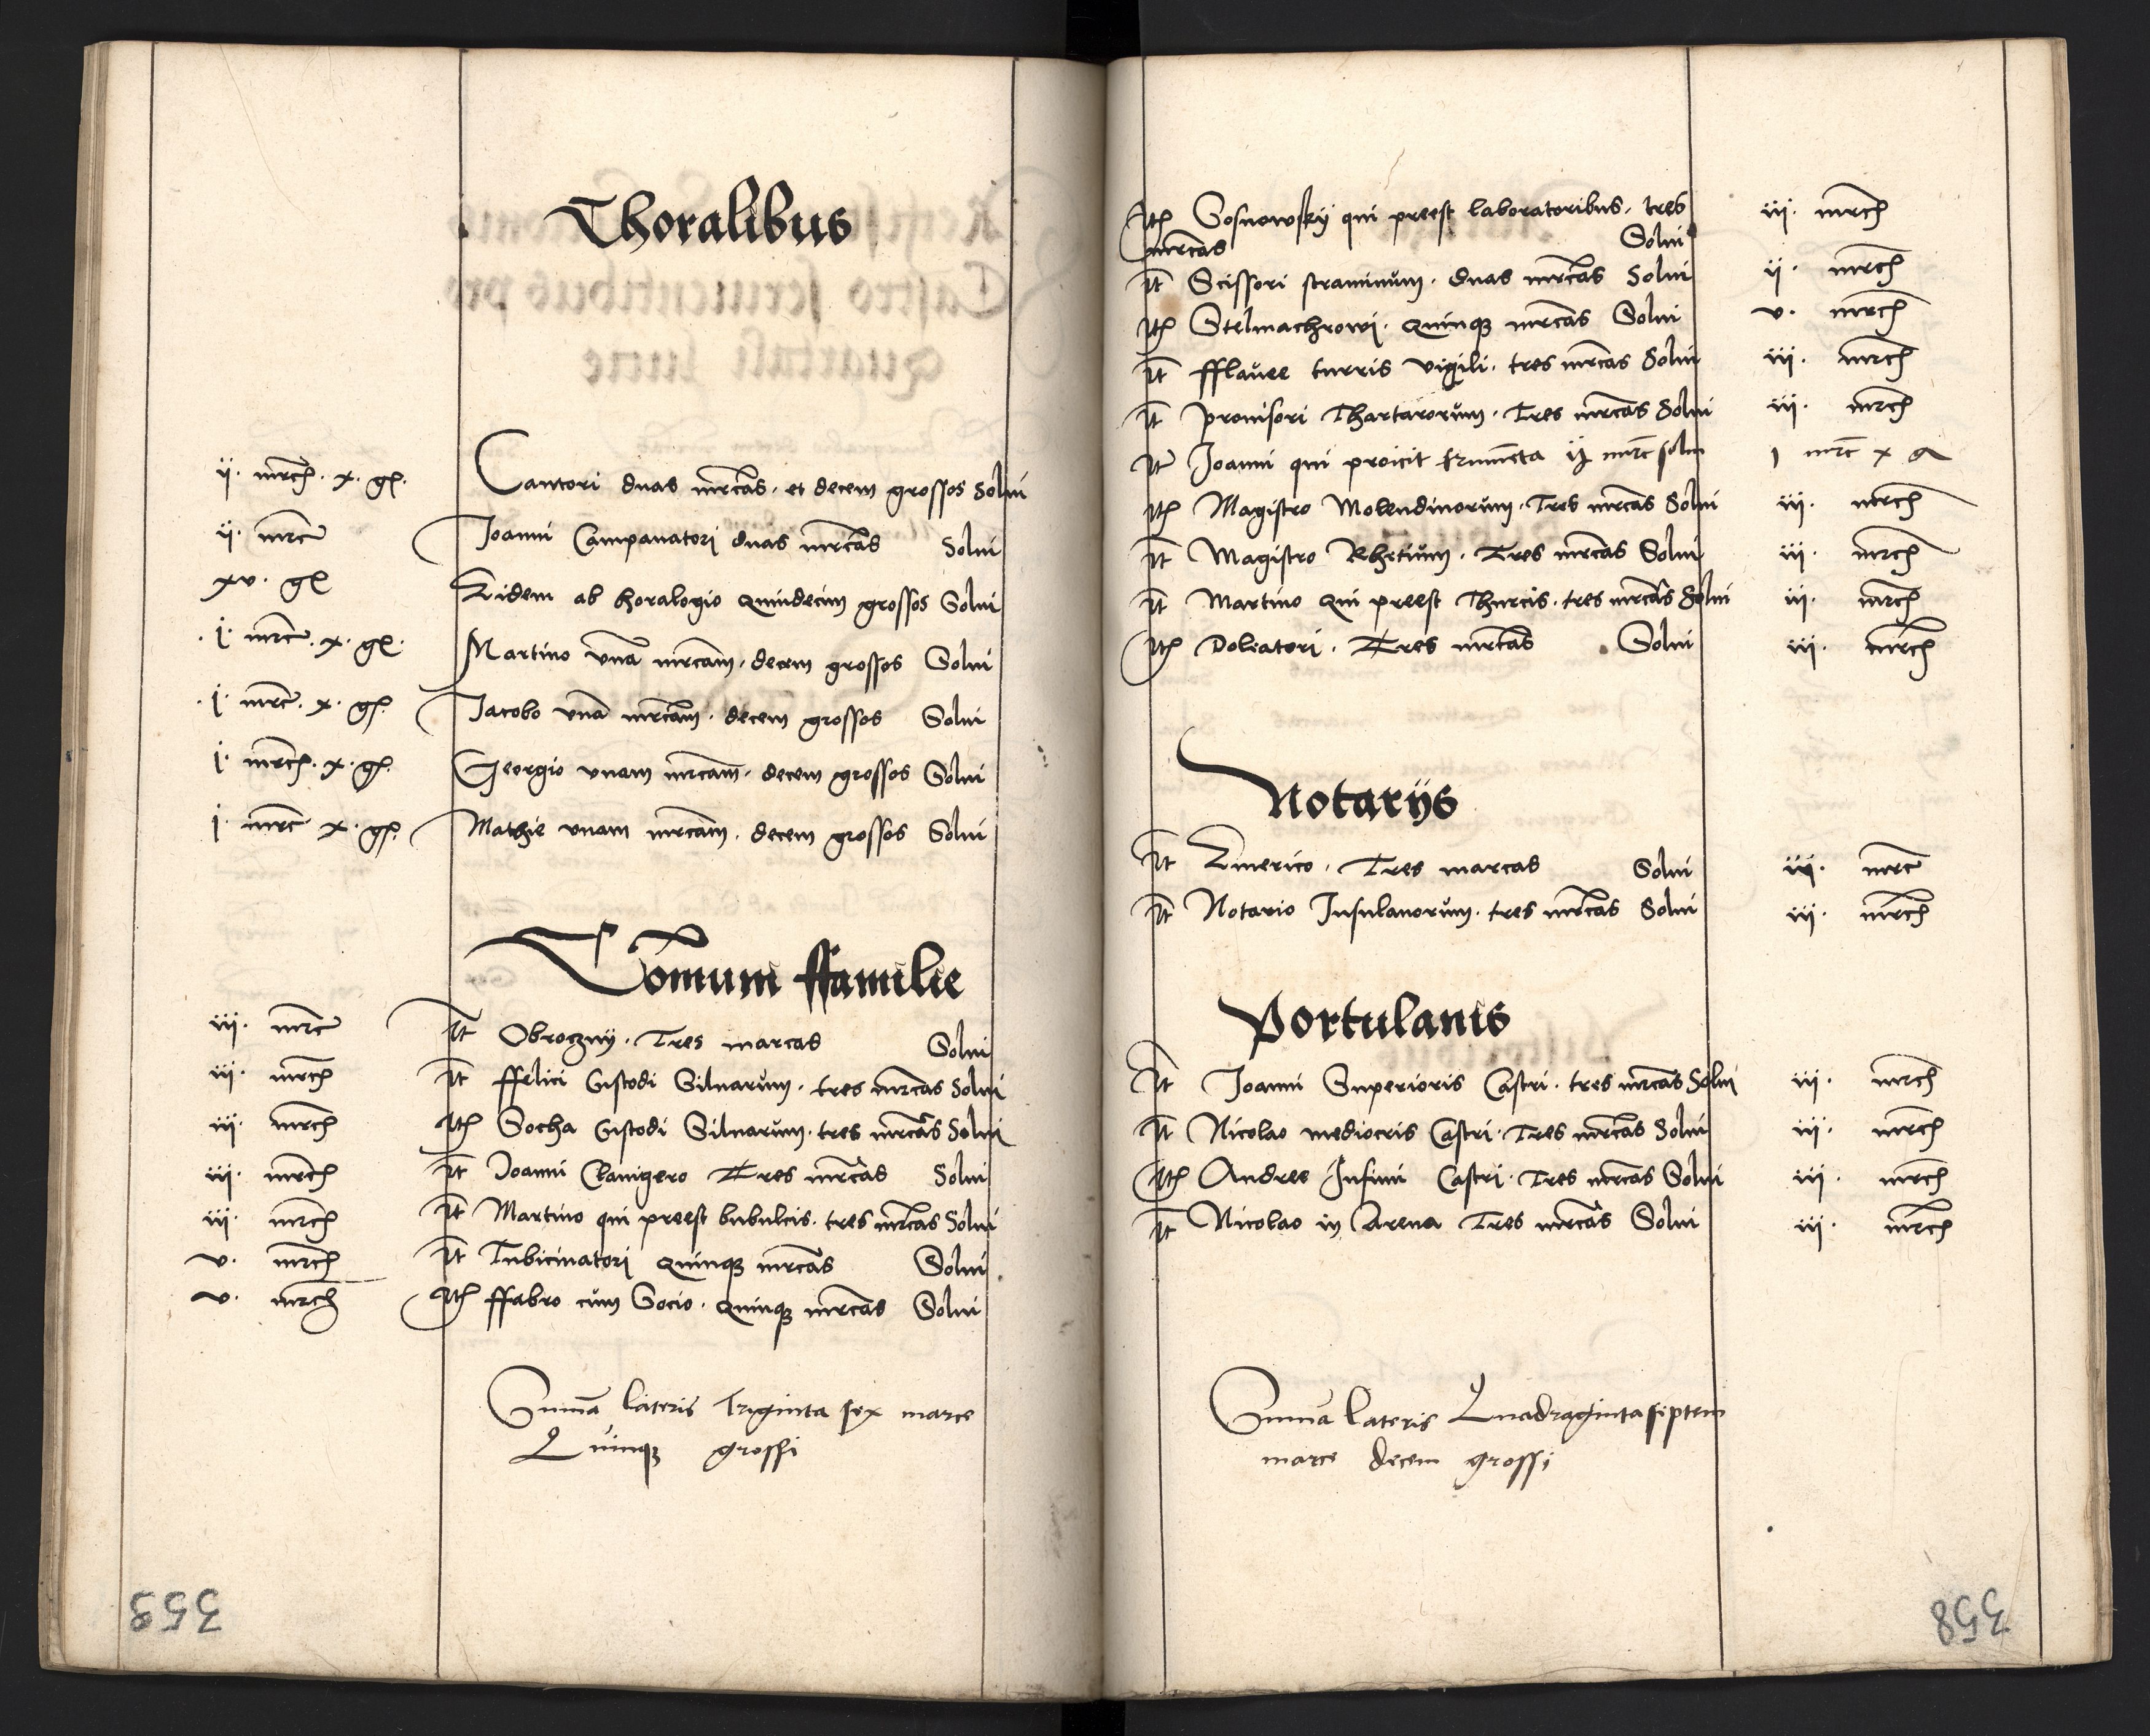 Thoralibus
ij. mrch. x. gs. Cantori duas mrcas. et decem grossos Solui
ij. mrc Joanni Campanatori duas mrcas Solui
xv. gs Eidem ab horalogio quindecim grossos Solui
.j. mrc. x. gs. Martino vna mrcam. decem grossos Solui
.j. mrc. x. gs. Jacobo vna mrcam. decem grossos Solui
j. mrch. x. gs. Georgio vnam mrcam. decem grossos Solui
j. mrc x. gs. Mathie vnam mrcam. decem grossos Solui
Comuni ffamilie
iij. mrc It Obroczny. Tres marcas Solui
iij. mrch It ffelici Custodi Siluarum. tres mrcas Solui
iij. mrch Ith Socha Custodi Siluarum. tres mrcas Solui
iij. mrch It Joanni Clauigero Tres mrcas Solui
iij. mrch It Martino qui preest bubulcis. tres mrcas Solui
v. mrch It Tubicinatori quinqz mrcas Solui
v. mrch Ith ffabro cum Socio. quinqz mrcas Solui
Suma lateris Triginta sex marce
Quinqz grossi
359
Ith Sosnowsky qui preest laboratoribus. tres iij. mrch
mrcas Solui
It Scissori straminum. duas mrcas Solui ij. mrch
Ith Stelmachrowi. quinqz mrcas Solui v. mrch
It fflauee turris vigili. tres mrcas Solui iij. mrch
It prouisori Thartarorum. Tres mrcas Solui iij. mrch
It Joanni qui proicit frumeta mrc solui j mrc x
Ith Magistro Molendinorum. Tres mrcas Solui iij. mrch
It Magistro Rhetium. Tres mrcas Solui iij. mrch
It Martino qui preest Thurcis. tres mrcas Solui iij. mrch
Ith Doleatori. Tres mrcas Solui iij. mrch
Notarijs
It Emerico. Tres marcas Solui iij. mrc
It Notario Insulanorum. tres mrcas Solui iij. mrch
Portulanis
It Joanni Superioris Castri. tres mrcas Solui iij. mrch
It Nicolao mediocris Castri. Tres mrcas Solui iij. mrch
Ith Andree Infimi Castri. Tres mrcas Solui iij. mrch
It Nicolao in Arena Tres mrcas Solui iij. mrch
Suma lateris Quadragintaseptem
marce decem grossi
358